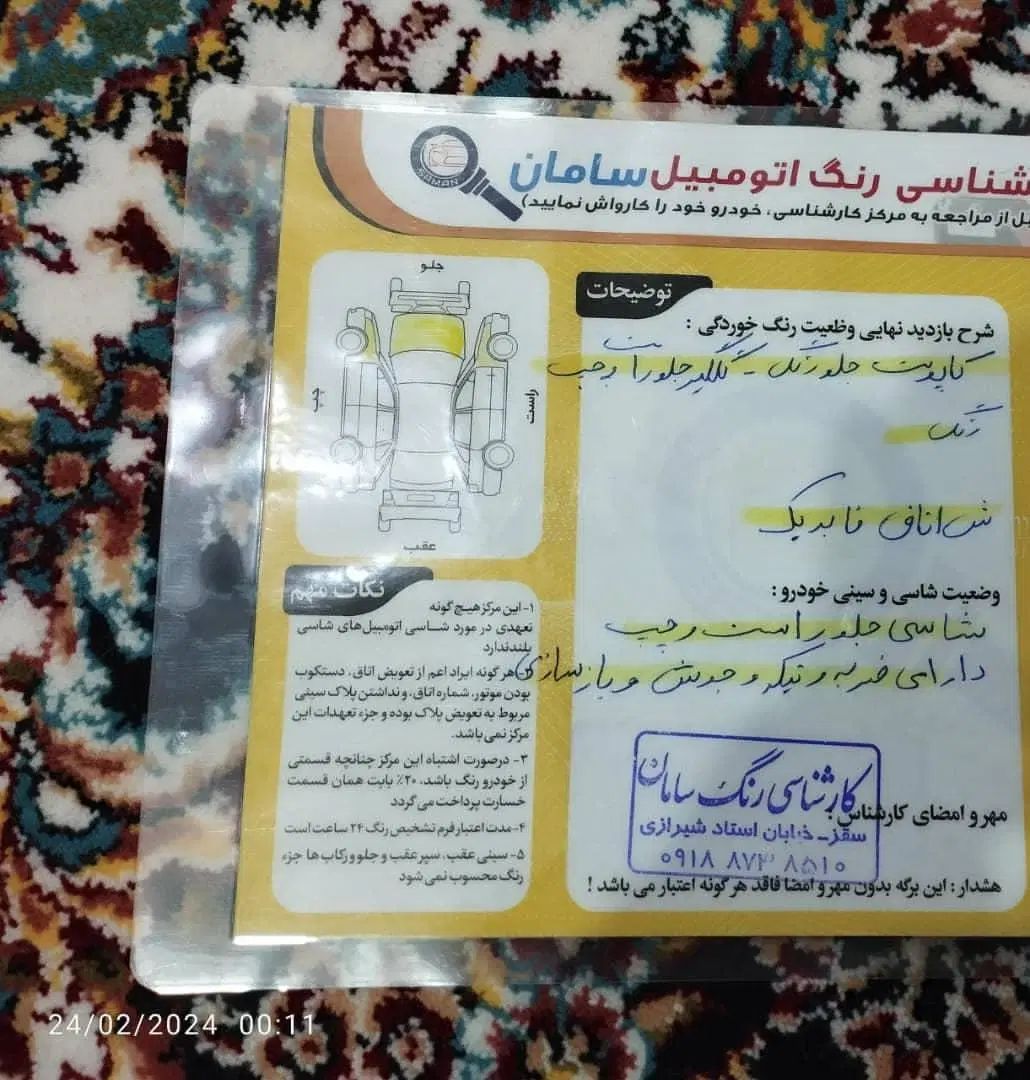 شناسی رنگ اتومبیل سامان
بل از مراجعه به مرکز کارشناسی، خودرو خود را کارواش نمایید)
SAMAN
توضیحات
شرح بازدید نهایی وظعیت رنگ خوردگی :
کاپوت جلو رنگ - گلگیر جلو راست و چپ
رنگ
ش اتاق فابریک
وضعیت شاسی و سینی خودرو :
شاسی جلو راست و چپ
دارای ضربه و تیکه و جوش و بازسازی
مهر و امضای کارشناس :
کارشناسی رنگ سامان
سقز - خیابان استاد شیرازی
۰۹۱۸ ۸۷۳ ۸۵۱۰
هشدار : این برگه بدون مهر و امضا فاقد هر گونه اعتبار می باشد !
جلو
چپ
راست
عقب
نکات مهم
۱- این مرکز هیچ گونه
تعهدی در مورد شناسی اتومبیل های شاسی
بلند ندارد
۲- هر گونه ایراد اعم از تعویض اتاق، دستکوب
بودن موتور، شماره اتاق، و نداشتن پلاک سینی
مربوط به تعویض پلاک بوده و جزء تعهدات این
مرکز نمی باشد.
۳- درصورت اشتباه این مرکز چنانچه قسمتی
از خودرو رنگ باشد، ۲۰٪ بابت همان قسمت
خسارت پرداخت می گردد
۴- مدت اعتبار فرم تشخیص رنگ ۲۴ ساعت است
۵- سینی عقب، سپر عقب و جلو و رکاب ها جزء
رنگ محسوب نمی شود
24/02/2024 00:11